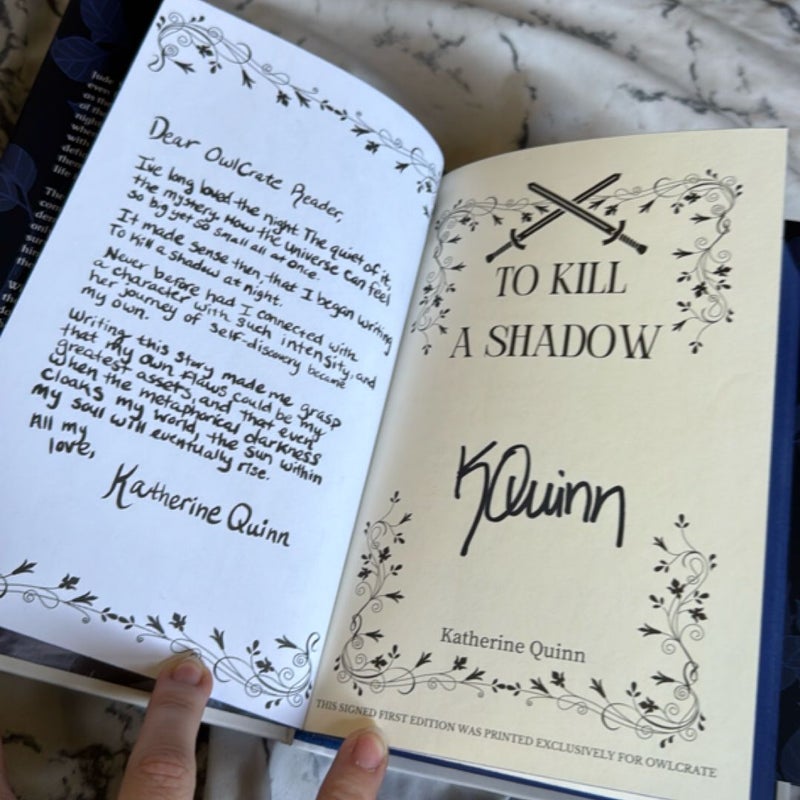 Dear OwlCrate Reader,
I've long loved the night The quiet of it,
the mystery. How the universe can feel
so big yet so small all at once.
It made sense then, that I began writing
To Kill a Shadow at night.
Never before had I connected with
a character with such intensity, and
her journey of self-discovery became
my own.
Writing this story made me grasp
that my own flaws could be my
greatest assets, and that even
when the metaphorical darkness
cloaks my world, the sun within
my soul will eventually rise.
All my
love,
Katherine Quinn
TO KILL
A SHADOW
KQuinn
Katherine Quinn
THIS SIGNED FIRST EDITION WAS PRINTED EXCLUSIVELY FOR OWLCRATE